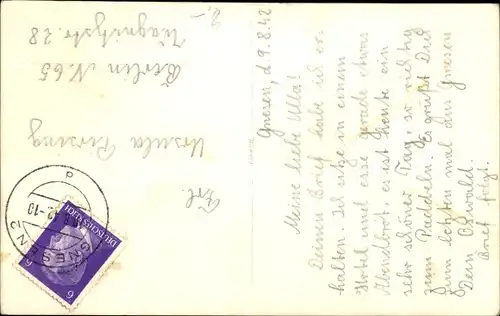 Gnesen, d 9.8.42
Meine liebe Ulla!
Deinen Brief habe ich er-
halten. Ich sitze in einem
Hotel und esse gerade etwas
Abendbrot. es ist heute ein
sehr schöner Tag, so richtig
zum Paddeln. Es grüßt Dich
zum letzten mal aus Gnesen
Dein Oswald.
Brief folgt.
Frl.
Ursula
Berlin N. 65
28
2,-
GNESEN 2
DEUTSCHES REICH
6
6